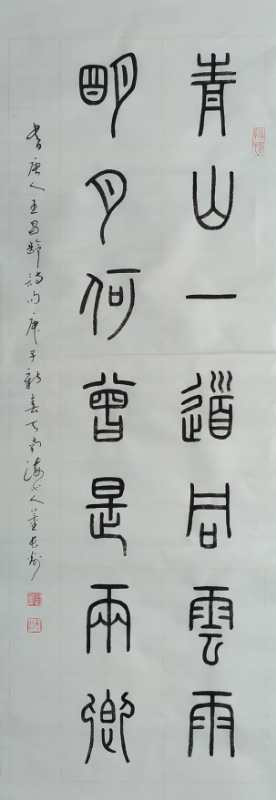 青山一道同雲雨
明月何曾是兩鄉
書唐人王昌齡詩句庚子新春於南海